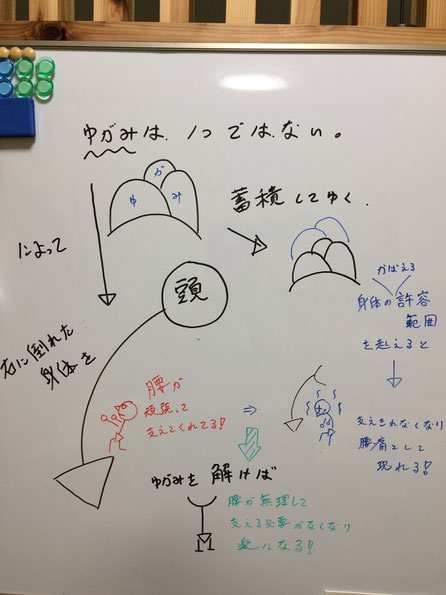 ゆがみは、1つではない。
ゆ
が
み
蓄積してゆく
によって
右に倒れた
身体を
頭
かばえる
身体の許容
範囲
を超えると
腰が
頑張って
支えてくれてる!!
⇒
支えきれなくなり
腰痛として
現れる!!
ゆがみを解けば
腰が無理して
支える必要がなくなり
楽になる!!